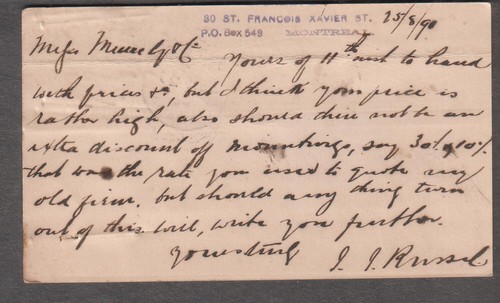 30 ST. FRANCOIS XAVIER ST. 25/8/90
P.O. BOX 549 MONTREAL
Messrs & Co
Yours of 11th inst to hand
with prices &c, but I think your price is
rather high, also should there not be an
extra discount off mountings, say 30% & 10%
that was the rate you used to quote my
old firm. but should any thing turn
out of this will, write you further.
Yours truly J. J. Russel